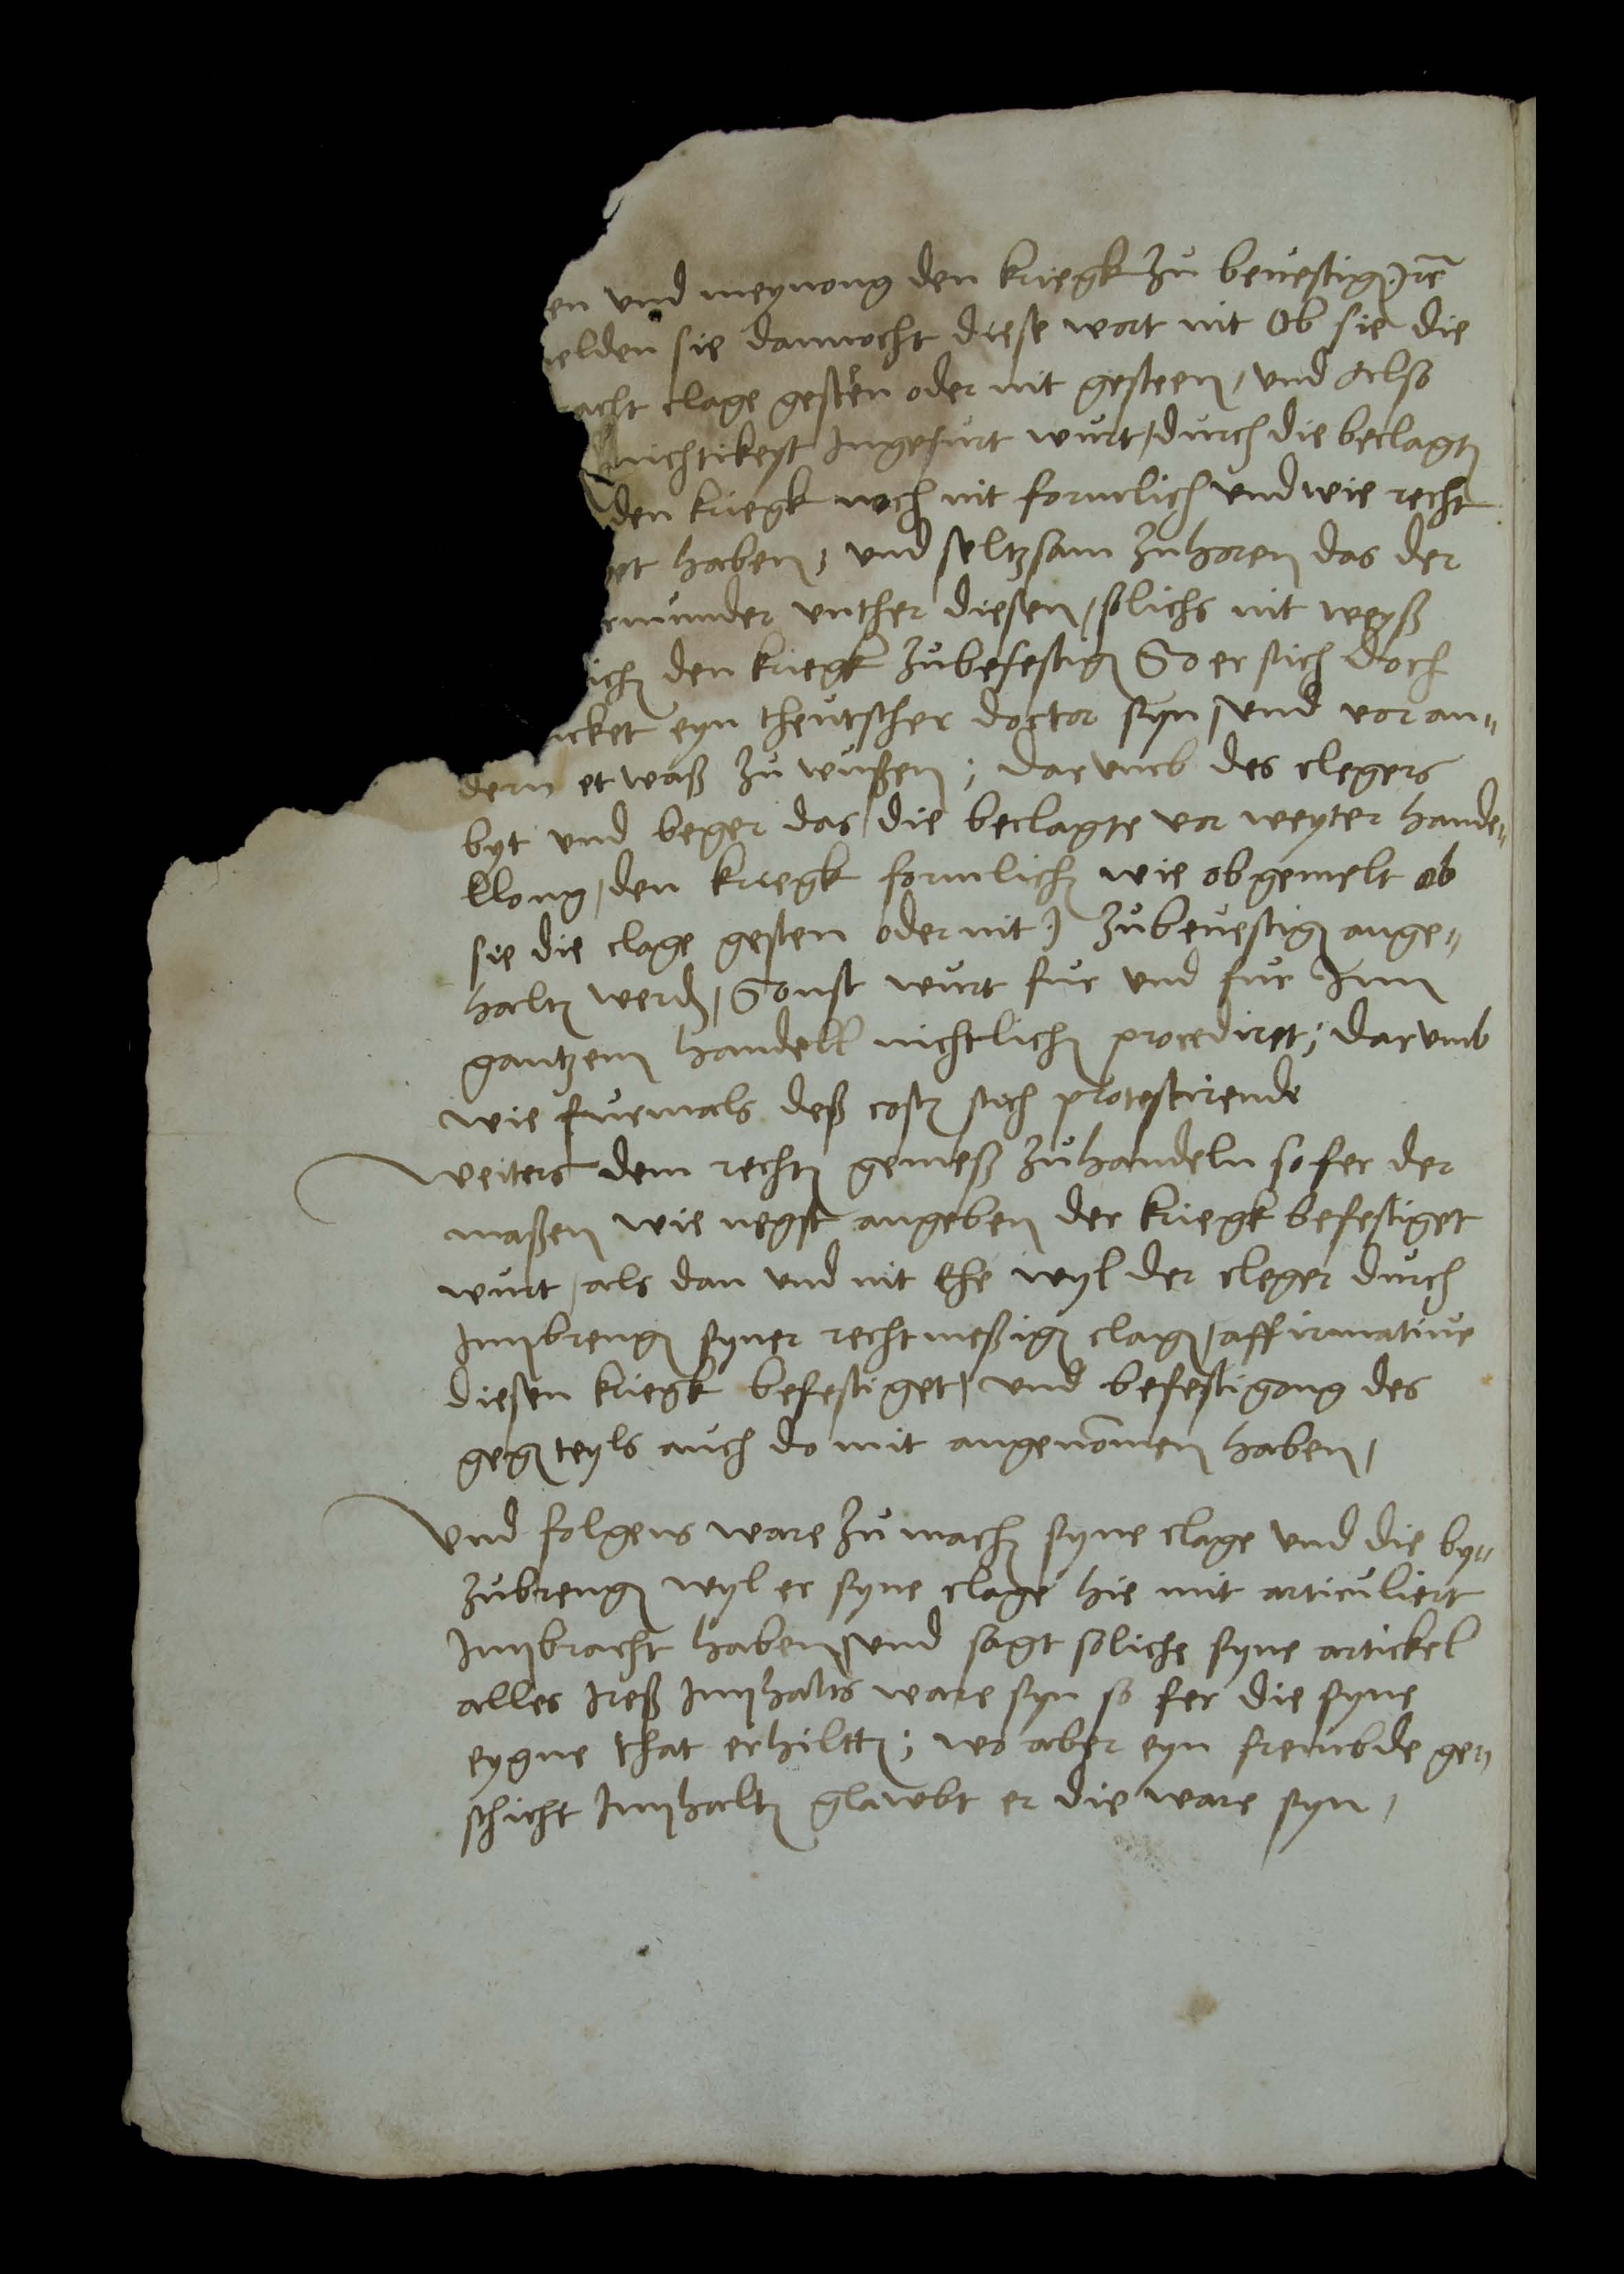 en vnd meynong den kriegk zu beuestig) rc̄
elden sie dannocht diese wort nit Ob sie die
acht clage gesten oder nit gesteen, vnd Also
nichtikeyt Ingefurt wurt, durch die beclagtn
den kriegk noch nit formlich vnd wie recht
et haben, vnd seltzsam zuhoren das der
rmunder vnther diesen, solichs nit weyß
ichn den kriegk zubefestign So er sich doch
ucket eyn theutscher doctor syn, vnd vor an„
dern etwaß zu wußen; dar vmb des clegers
byt vnd beger das, die beclagte vor weyter hande„
llong, den kriegk formlichn wie obgemelt ob
sie die clage gesten oder nit) zubeuestign ange„
haltn werdn, Sonst wurt fur vnd fur Inn
gantzem handell nichtlichn procediret; dar vmb
wie furmals deß costn sich protestirende
Weiters dem rechtn gemeß zuhandeln so fer der
maßen wie negst angeben der kriegk befestiget
wurt, als dan vnd nit Ehe wyl der cleger durch
Innbrengn syner rechtmeßign clagn, affirmatiue
diesen kriegk befestiget, vnd befestigong des
gegnteyls auch do mit angenomen haben,
Vnd folgens ware zu machn syne clage vnd die by„
zubrengn wyl er syne clage hie mit articuliert
Innbracht haben, vnd sagt soliche syne artickel
alles Ireß Innhalts ware syn so fer die syne
eygne that erhilttn; wo aber eyn frembde ge„
schicht Innhaltn glawbt er die ware syn,